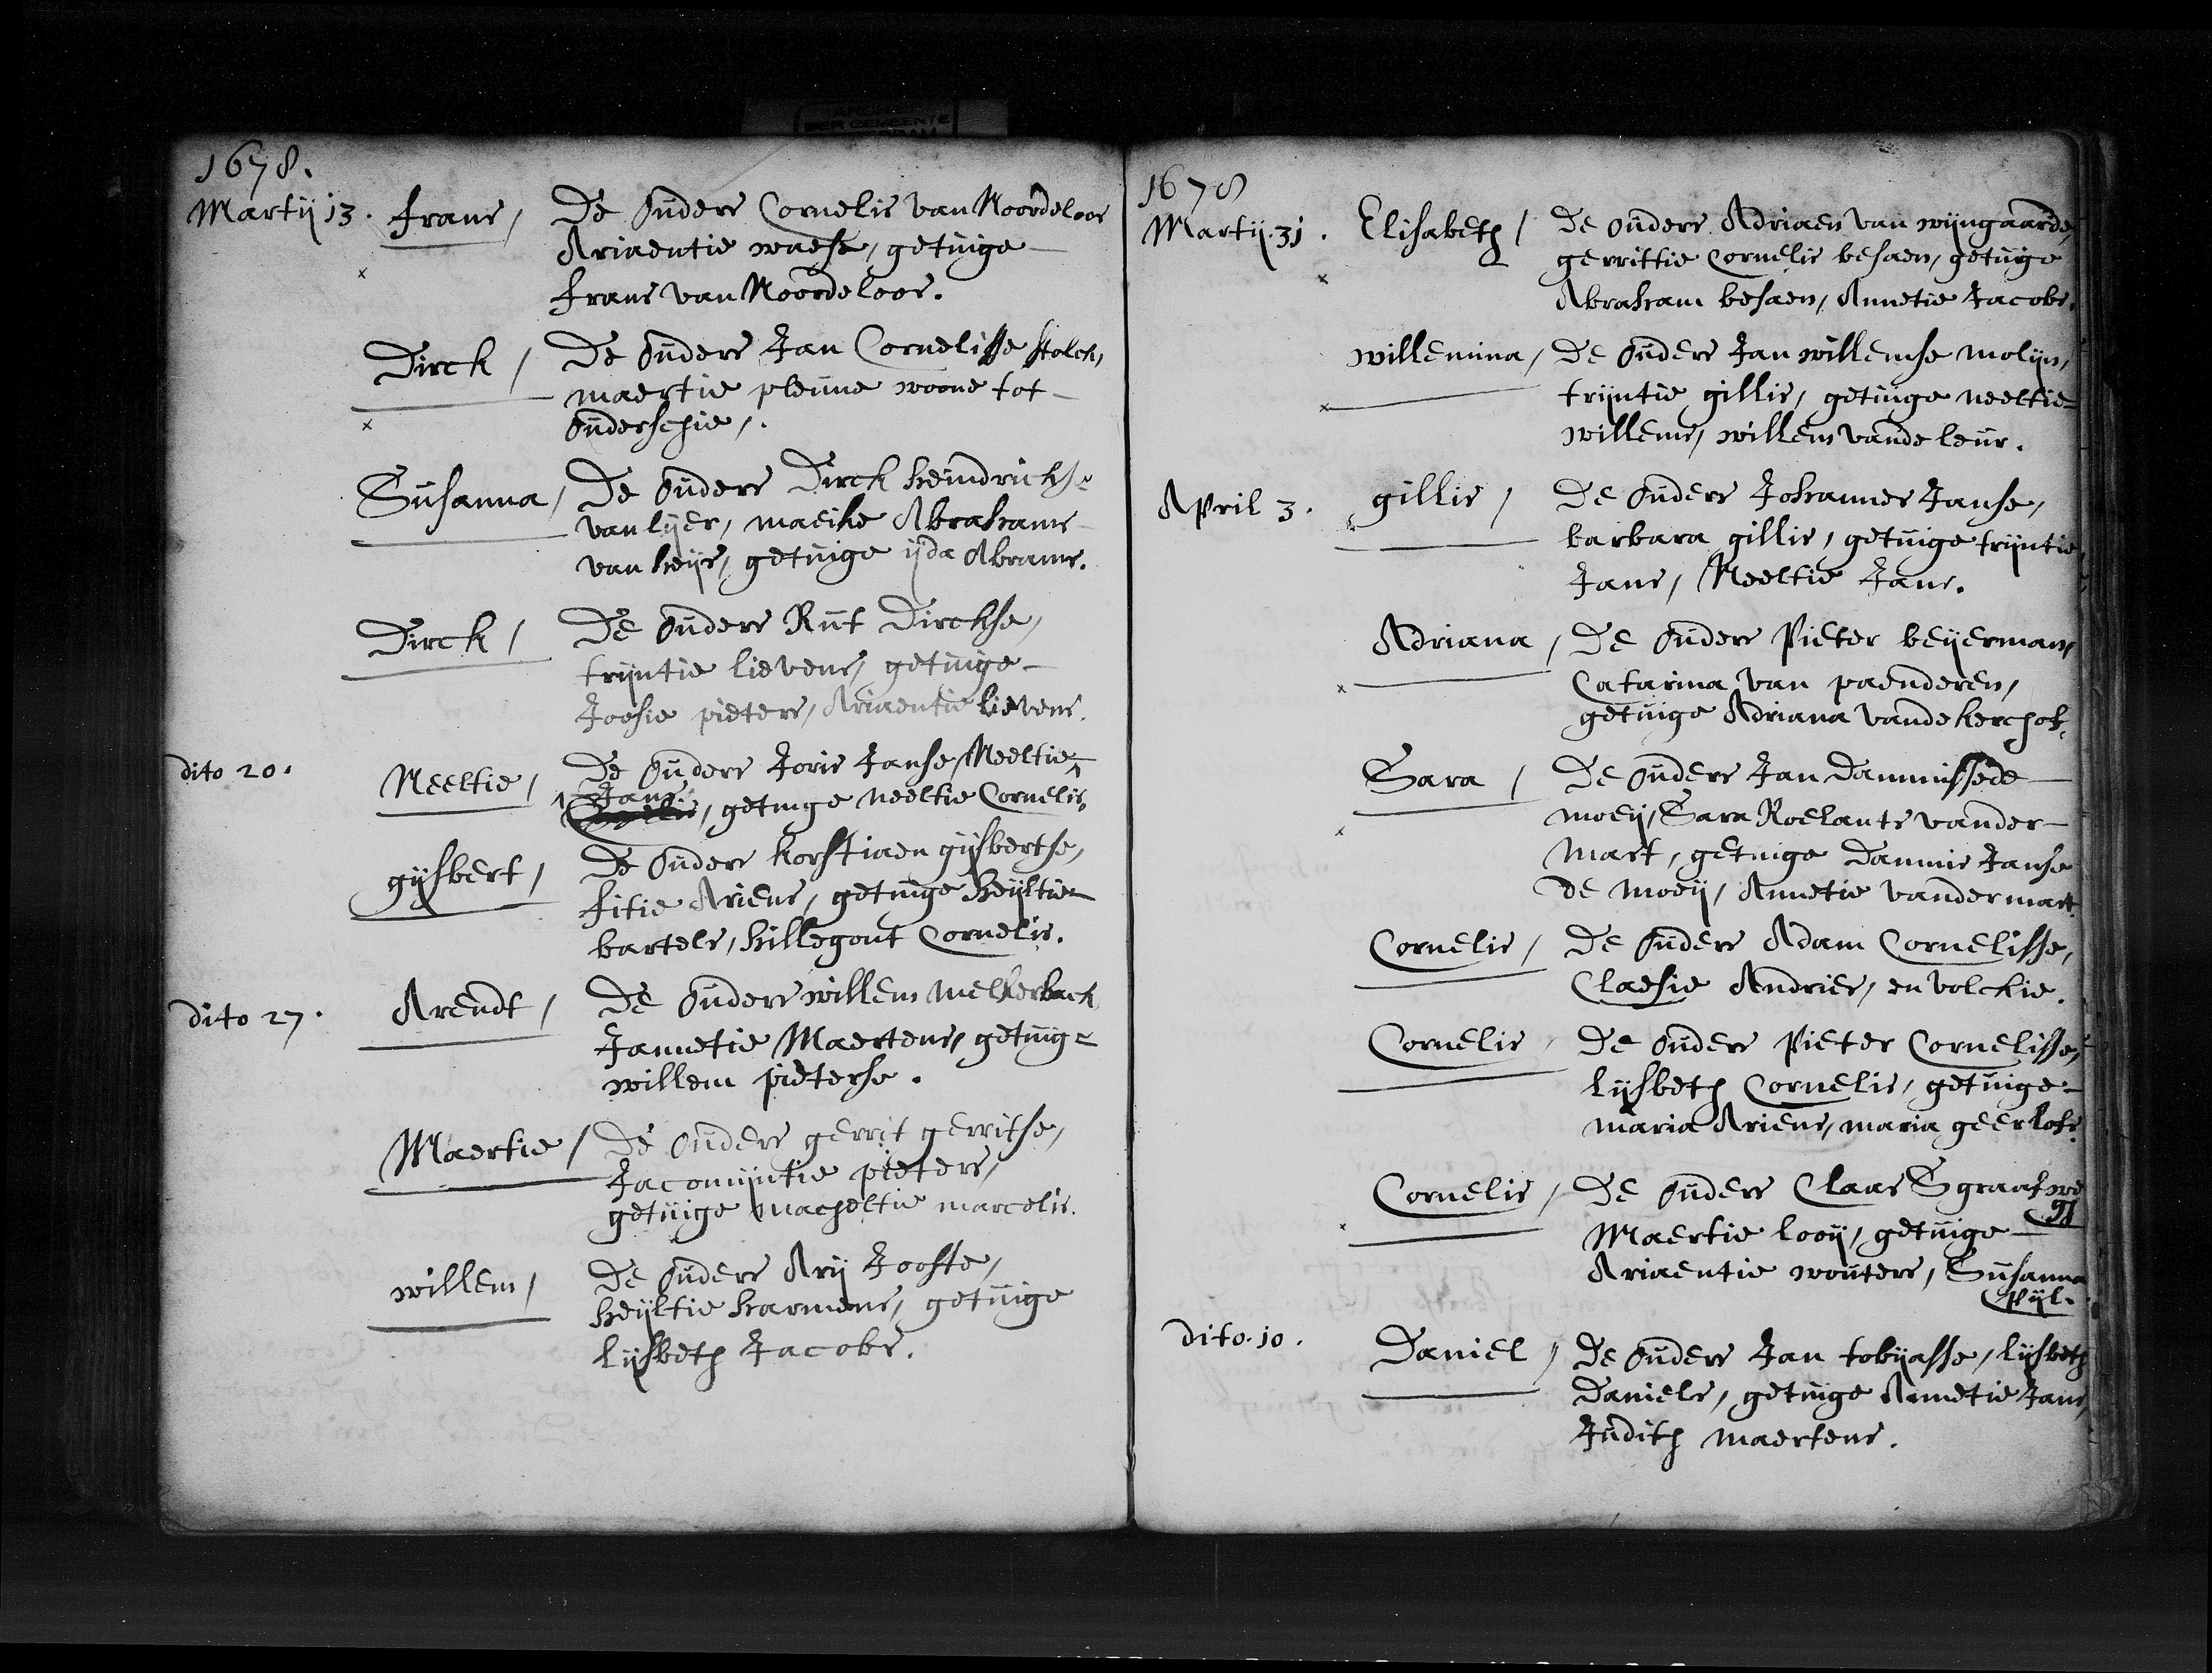 1678.
Martij 13. frans / De Ouders Cornelis van Noordeloos
Ariaentie waess, getuige
frans van Noordeloos.
Dirck / De Ouders Jan Cornelisse stolck,
maertie pleune woone tot
Ouderschie /.
Susanna / De Ouders Dirck heindrickse
van lijer, maeike Abrahams
van heijs, getuige ijda Abrams.
Dirck / De Ouders Rut Dirckse,
trijntie lievens, getuige
Joosie pieters, Ariaentie lievens.
dito 20. Neeltie / De Ouders Joris Janse, Neeltie
Jans, getuige neeltie Cornelis,
gijsbert / De Ouders korstiaen gijsbertse,
fitie Ariens, getuige heijltie
bartels, hillegont Cornelis.
dito 27. Arendt / De Ouders willem melkerback
Jannetie Maertens, getuige
willem pieterse.
Maertie / De Ouders gerrit gerritse,
Jacomijntie pieters,
getuige macheltie marcelis.
willem / De Ouders Arij Jooste,
heijltie harmens, getuige
lijsbeth Jacobs.
1678
Martij 31. Elisabeth / De Ouders Adriaen van wijngaarde,
gerrittie Cornelis besaen, getuige
Abraham besaen, Annetie Jacobs.
willemina / De Ouders Jan willemse molijn,
trijntie gillis, getuige neeltie
willems, willem vande leur.
April 3. gillis / De Ouders Johannes Janse,
barbara gillis, getuige trijntie
Jans, Neeltie Jans.
Adriana / De Ouders Pieter beijerman,
Catarina van paenderen,
getuige Adriana vande kerchof.
Sara / De Ouders Jan Dammisse de
moeij, Sara Roelants vander
Mast, getuige Dammis Janse
de moeij, Annetie vander mast.
Cornelis / De Ouders Adam Cornelisse,
Claesie Andries, en volckie.
Cornelis / De Ouders Pieter Cornelisse,
lijsbeth Cornelis, getuige
maria Ariens, maria geerlofs.
Cornelis / De Ouders Claas Sgraafwe
gs
Maertie looij, getuige
Ariaentie wouters, Susanna
Pijl.
Dito. 10. Daniel / De Ouders Jan tobijasse, lijsbeth
Daniels, getuige Annetie Jans,
Judith maertens.